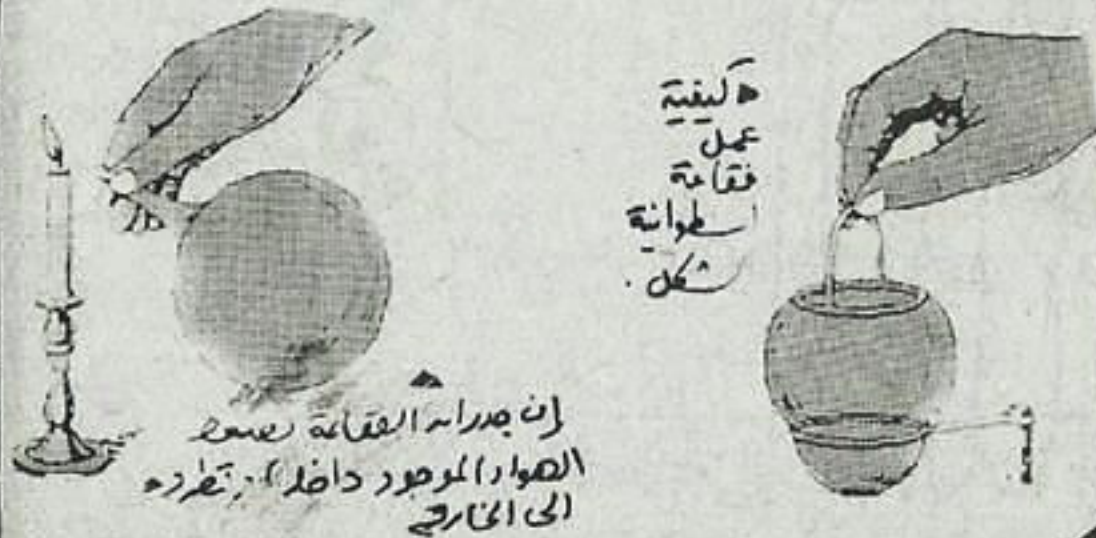 كيفية
عمل
فقاعة
اسطوانية
شكل .
إن جدران الفقاعة تضغط
الهواء الموجود داخلها وتطرده
الى الخارج